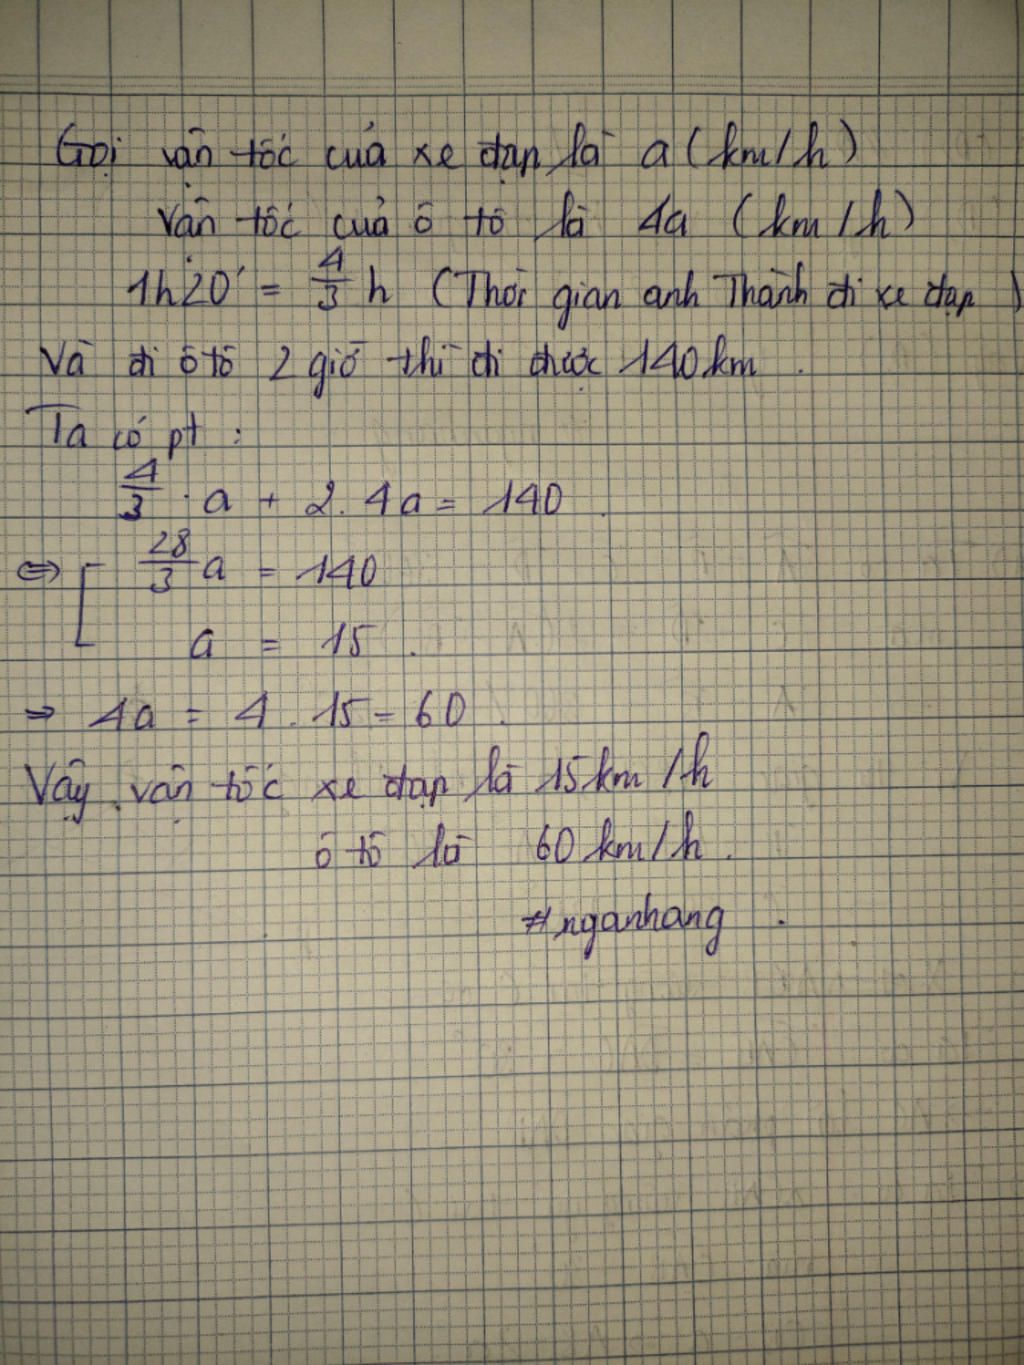 Gọi vận tốc của xe đạp là a (km/h)
Vận tốc của ô tô là 4a (km/h)
1h20' = 4/3 h (Thời gian anh Thành đi xe đạp)
Và đi ô tô 2 giờ thì đi được 140 km.
Ta có pt:
4/3 . a + 2. 4a = 140.
⇔ [ 28/3 a = 140
a = 15.
⇒ 4a = 4 . 15 = 60.
Vậy vận tốc xe đạp là 15 km/h
ô tô là 60 km/h.
#nganhang.